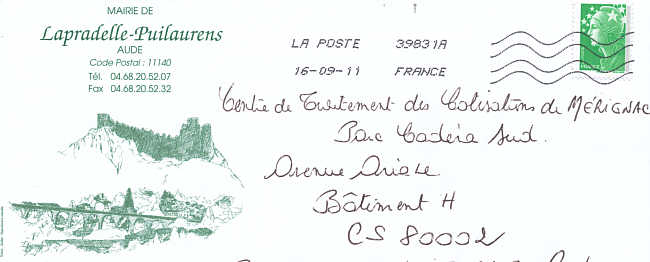 MAIRIE DE
Lapradelle-Puilaurens
AUDE
Code Postal : 11140
Tél. 04.68.20.52.07
Fax 04.68.20.52.32
LA POSTE 39831A
16-09-11 FRANCE
Centre de Traitement des Cotisations de MÉRIGNAC
Parc Cadéra Sud.
Avenue Ariane
Bâtiment H
CS 80002